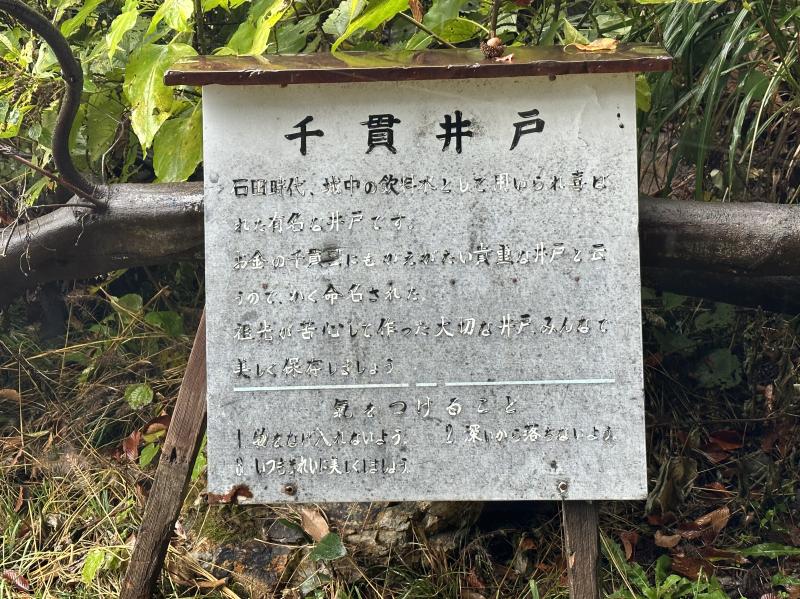 千貫井戸
石田時代、城中の飲料水として用いられ喜ば
れた有名な井戸です。
お金の千貫貫にもかえがたい貴重な井戸と云
うので、かく命名された。
祖先が苦心して作った大切な井戸、みんなで
美しく保存しましょう
氣をつけること
1 物をなげ入れないよう。 2 深いから落ちないよう。
3 いつもきれいに美しくしましょう